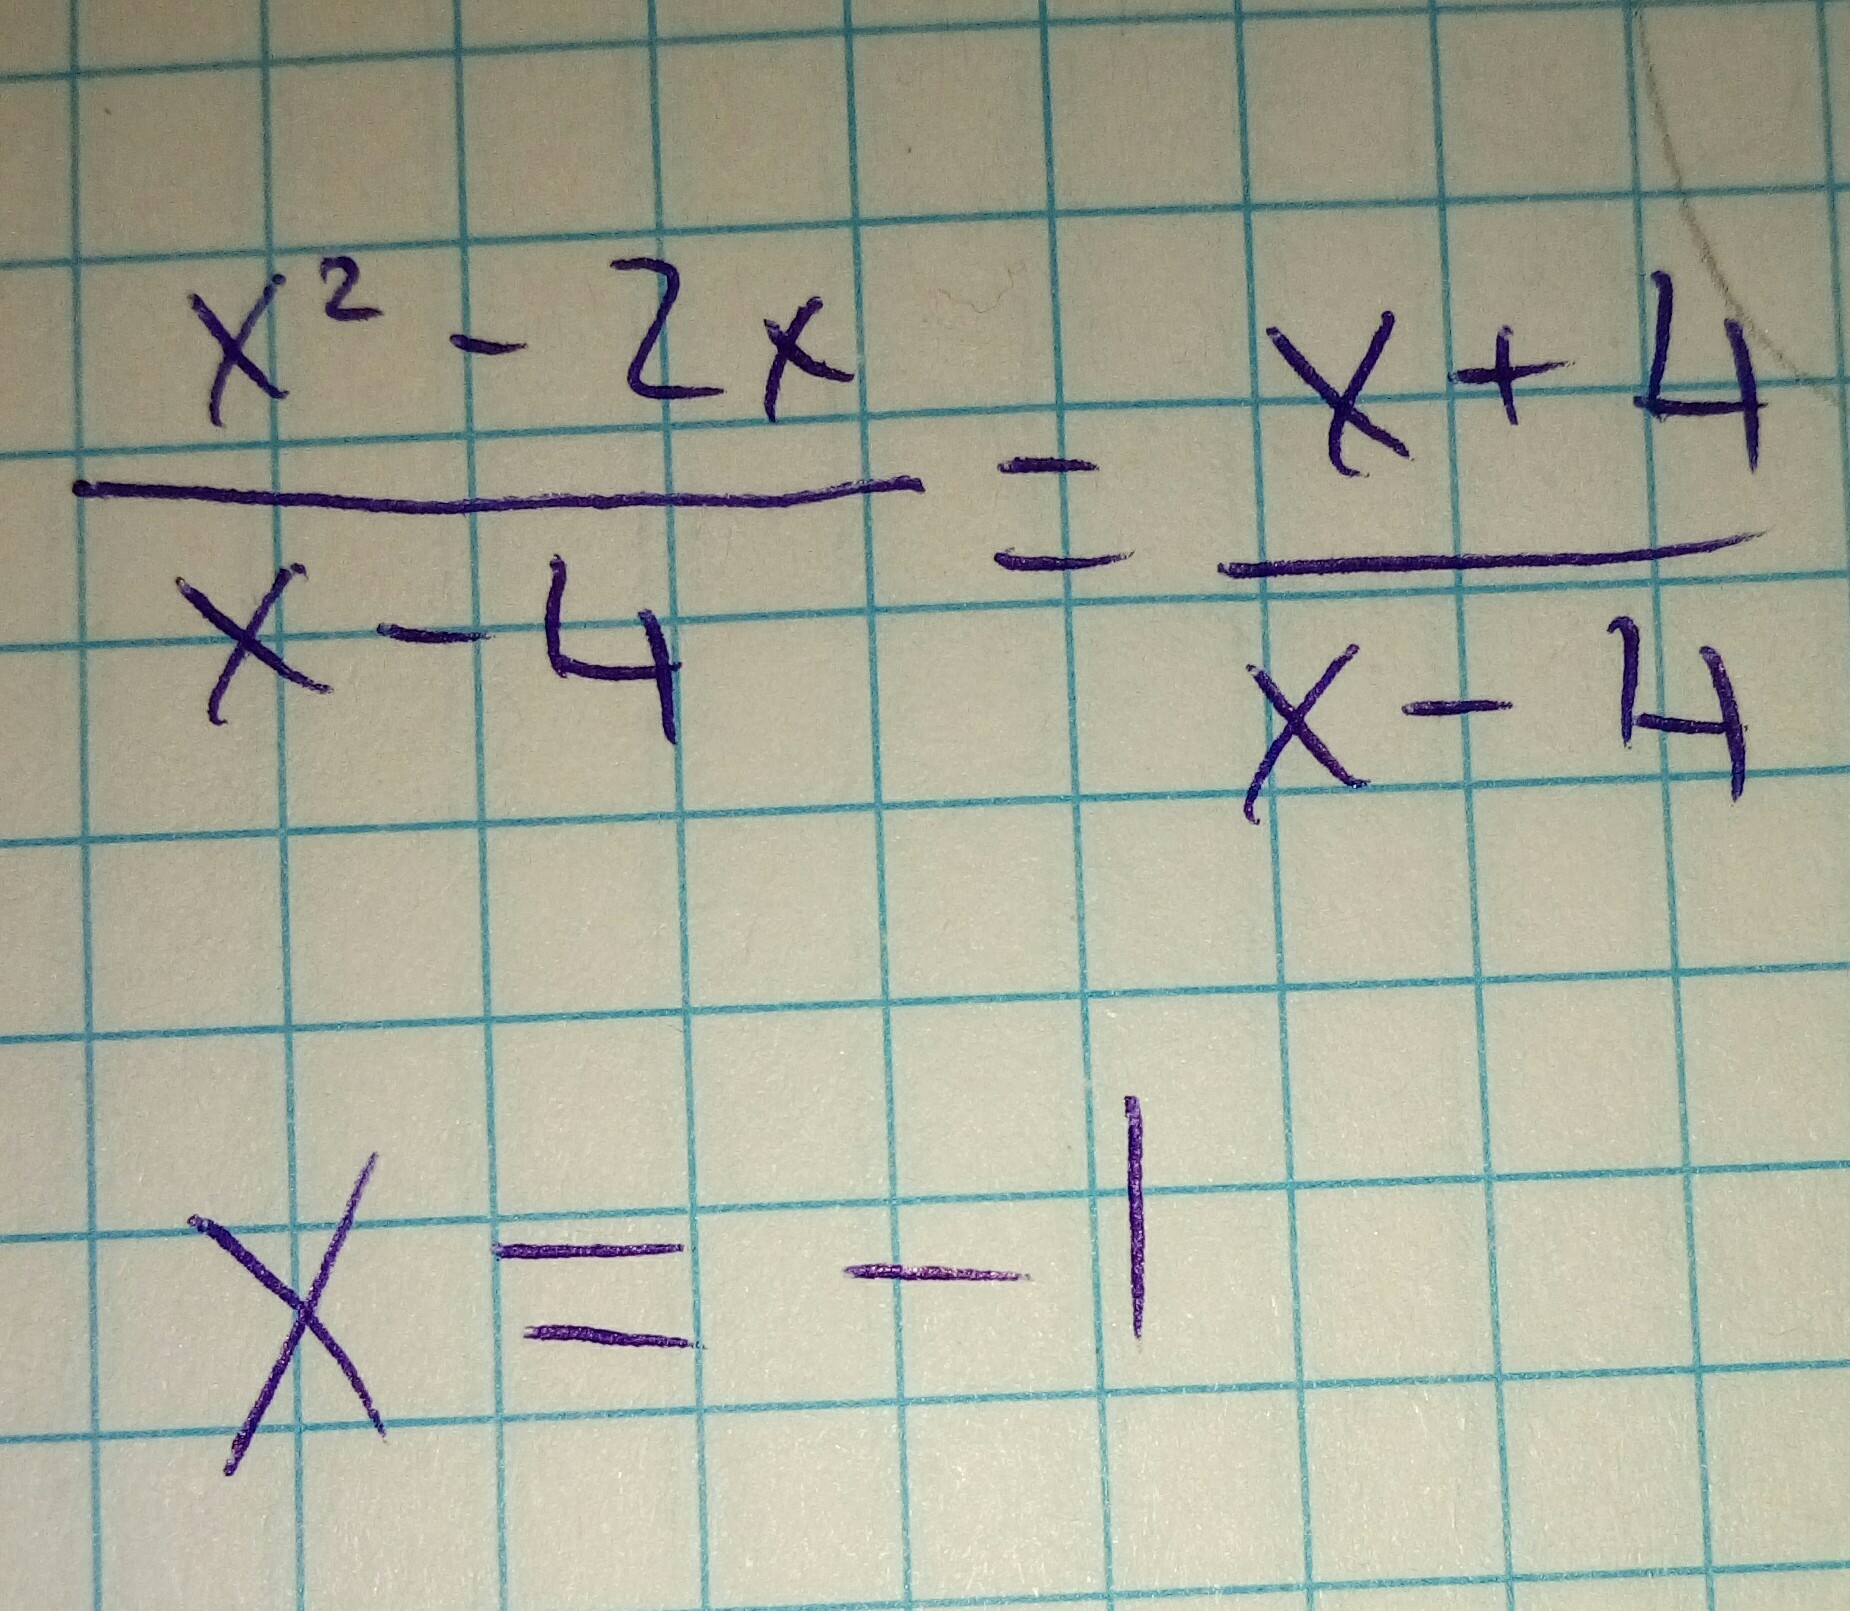 x² - 2x / x - 4 = x + 4 / x - 4
x = -1